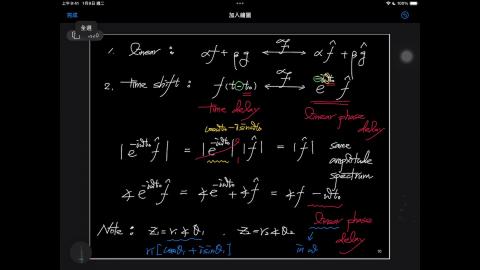 上午9:41 1月9日週二
完成 加入繪圖
全選
1. Linear : αf + βg ⟷ αf̂ + βĝ
2. Time shift : f(t-t₀) ⟷ e^{-iωt₀} f̂
time delay linear phase delay
cosωt₀ - i sinωt₀
|e^{-iωt₀} f̂| = |e^{-iωt₀}| |f̂| = |f̂| same amplitude spectrum
∡e^{-iωt₀} f̂ = ∡e^{-iωt₀} + ∡f̂ = ∡f - ωt₀
linear phase delay
in ω
Note : z₁ = r₁∡θ₁ . z₂ = r₂∡θ₂
r₁[cosθ₁ + i sinθ₁]